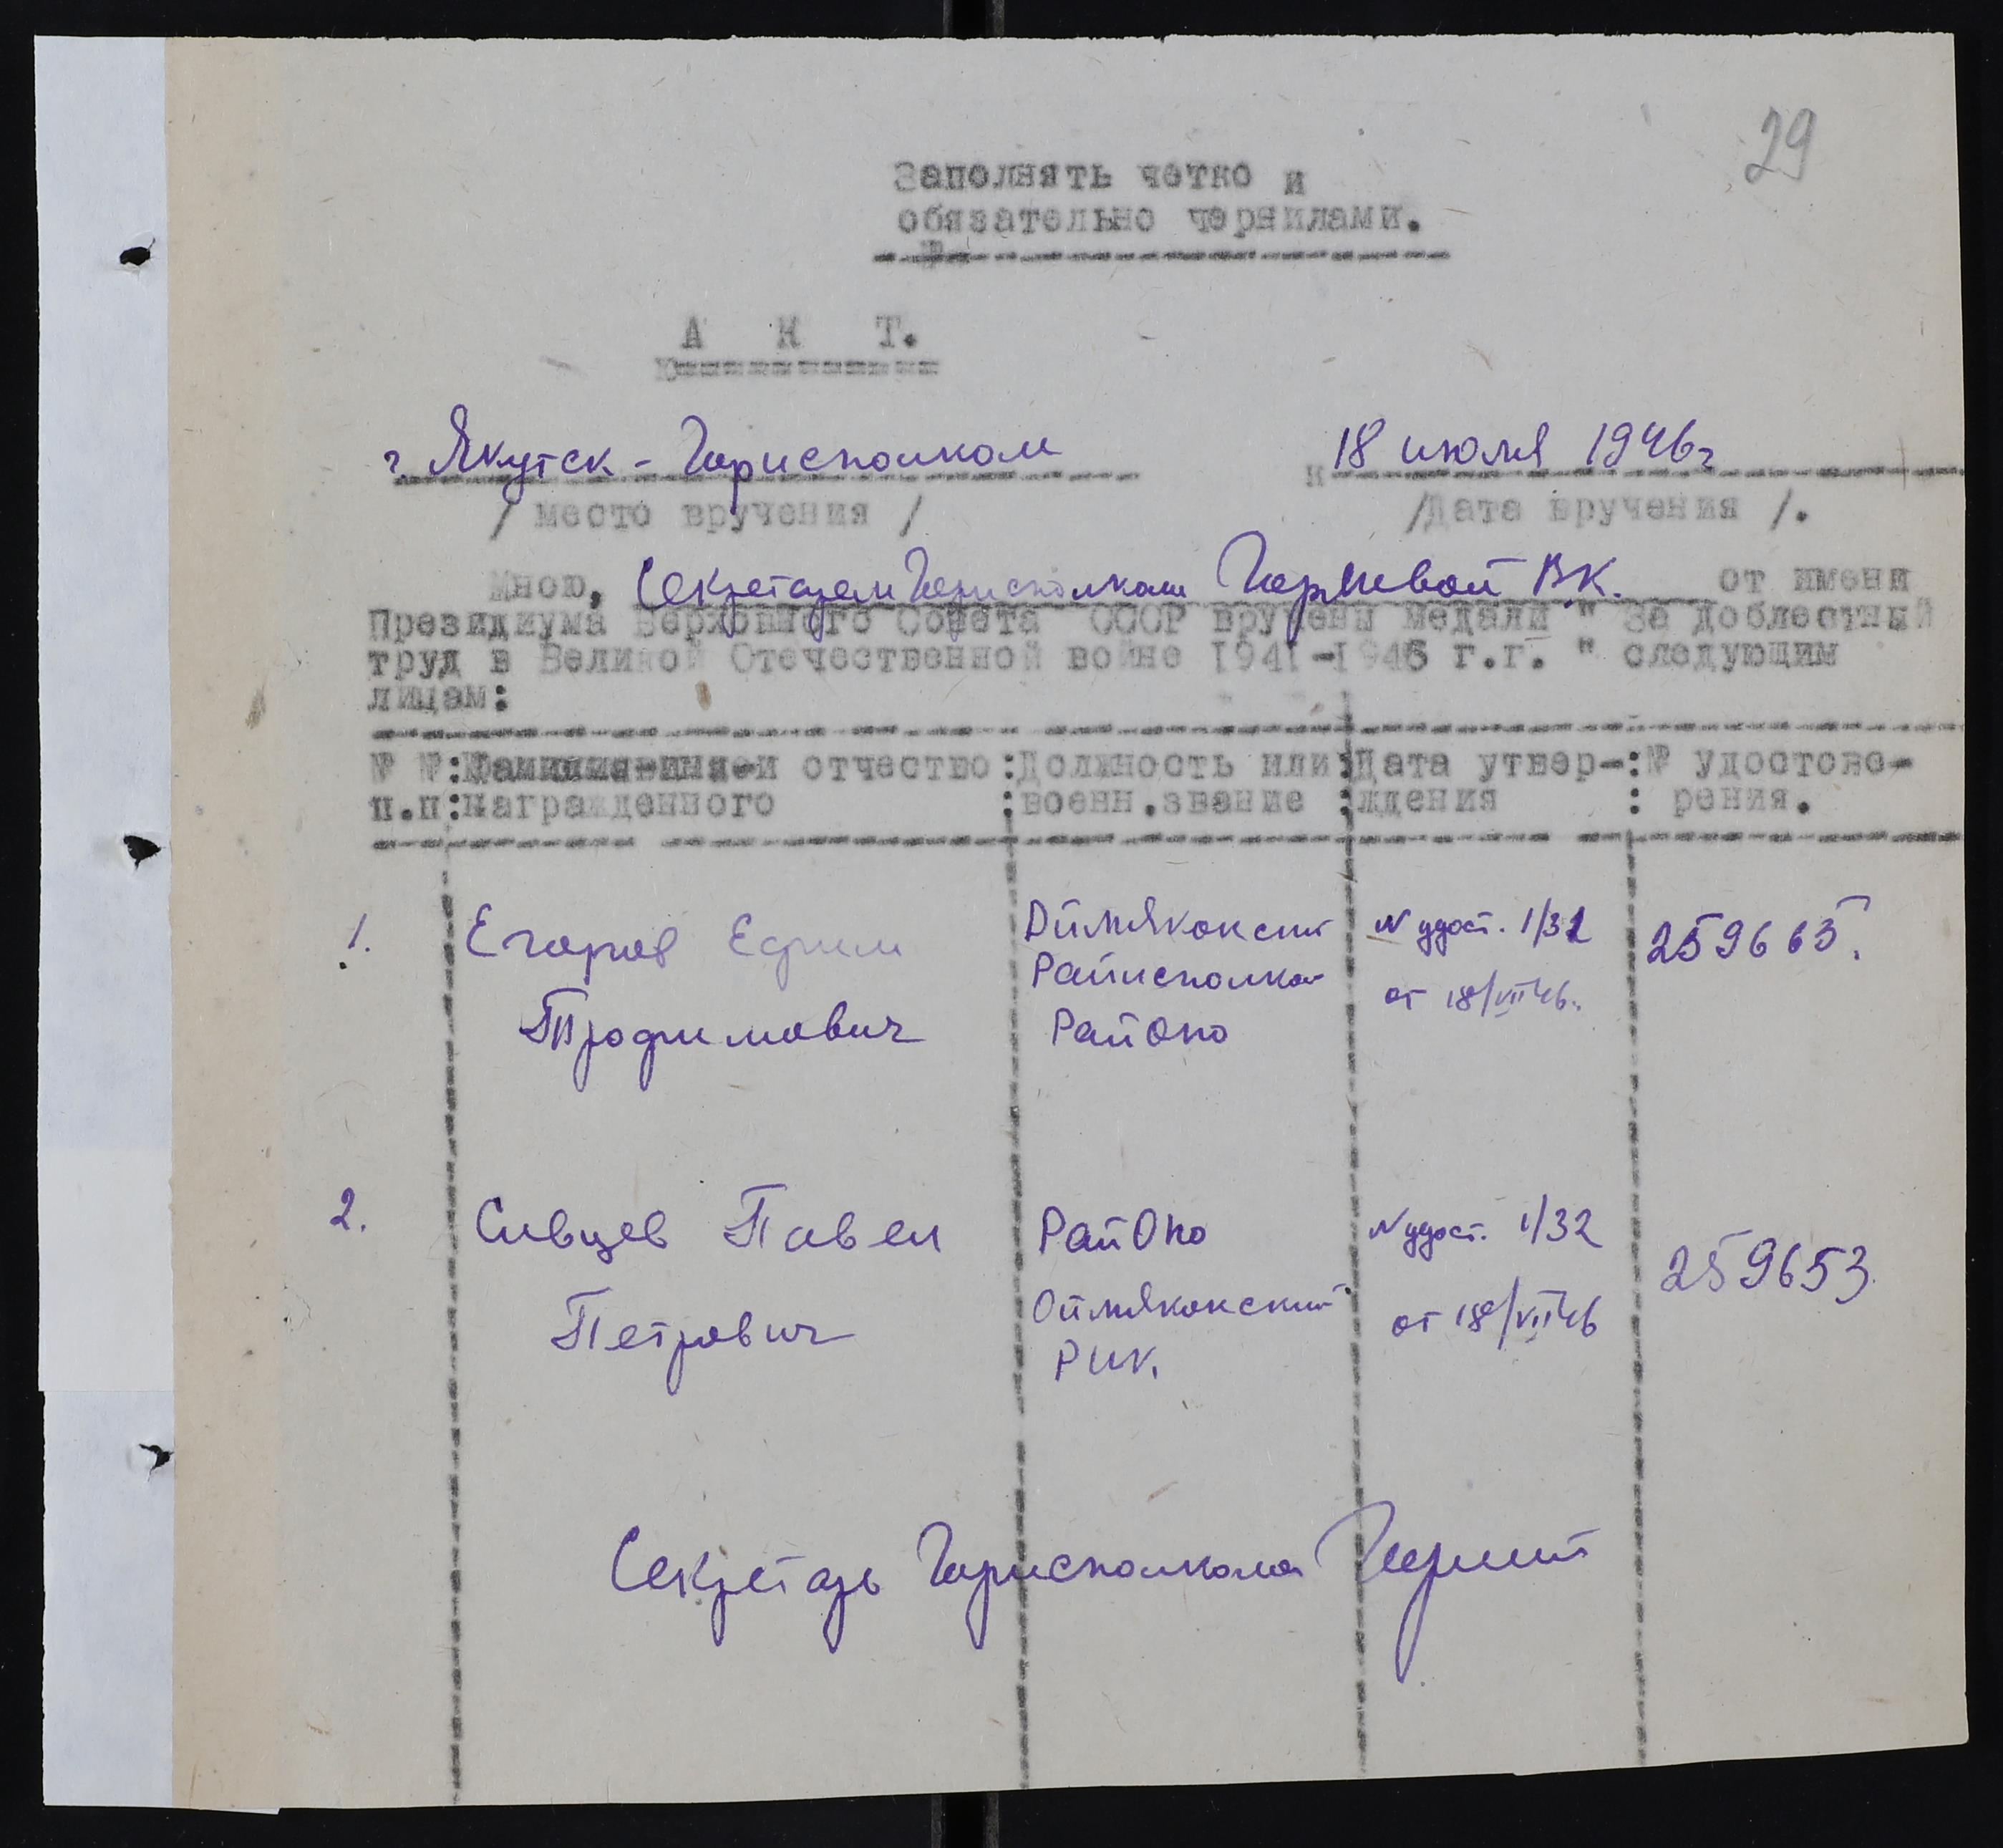 29
Заполнять четко и
обязательно чернилами.
А К Т.
г Якутск - Горисполком 18 июля 1946г
/ место вручения / /Дата вручения /.
Мною, Секретарем Горисполкома В.К. от имени
Президиума Верховного Совета СССР вручены медали " За доблестный
труд в Великой Отечественной войне 1941-1945 г.г. " следующим
лицам:
№ №:Фамилия-имя-и отчество:Должность или:Дата утвер-:№ удостове-
п.п:награжденного :военн.звание :ждения : рения.
1. Егоров Ефим Оймяконский N удост. 1/32 259665.
Райисполком от 18/VII46.
Трофимович РайОно
2. Сивцев Павел РайОно N удост. 1/32 259653
Петрович Оймяконский от 18/VII46
РИК.
Секретарь Горисполкома